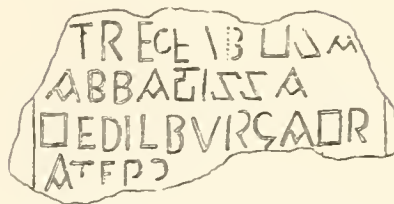 TRECEIBUSM
ABBATISSA
OEDILBVRGAOR
ATEPRO